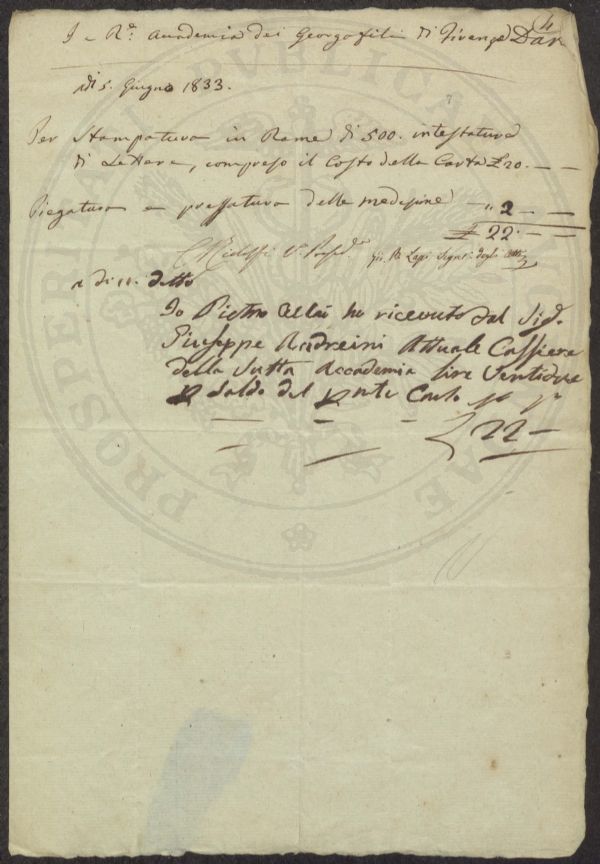 4
I. R.ᵉ Accademia dei Georgofili di Firenze Dar
Adi 5. Giugno 1833.
Per Stampatura in Rame di 500. intestature
di Lettere, compreso il Costo della Carta £ 20. — —
Piegatura e pressatura delle medesime — " 2 — —
£ 22. — —
C Ridolfi V. Presid.
Gio. B. Lapi Segret. degli Atti
a di 11. detto
Io Pietro ho ricevuto dal Sig.
Giuseppe Andreini Attuale Cassiere
della Sud.tta Accademia Lire Ventidue
p Saldo del pnte Conto
£ 22 —
PROSPERITATI PUBLICAE